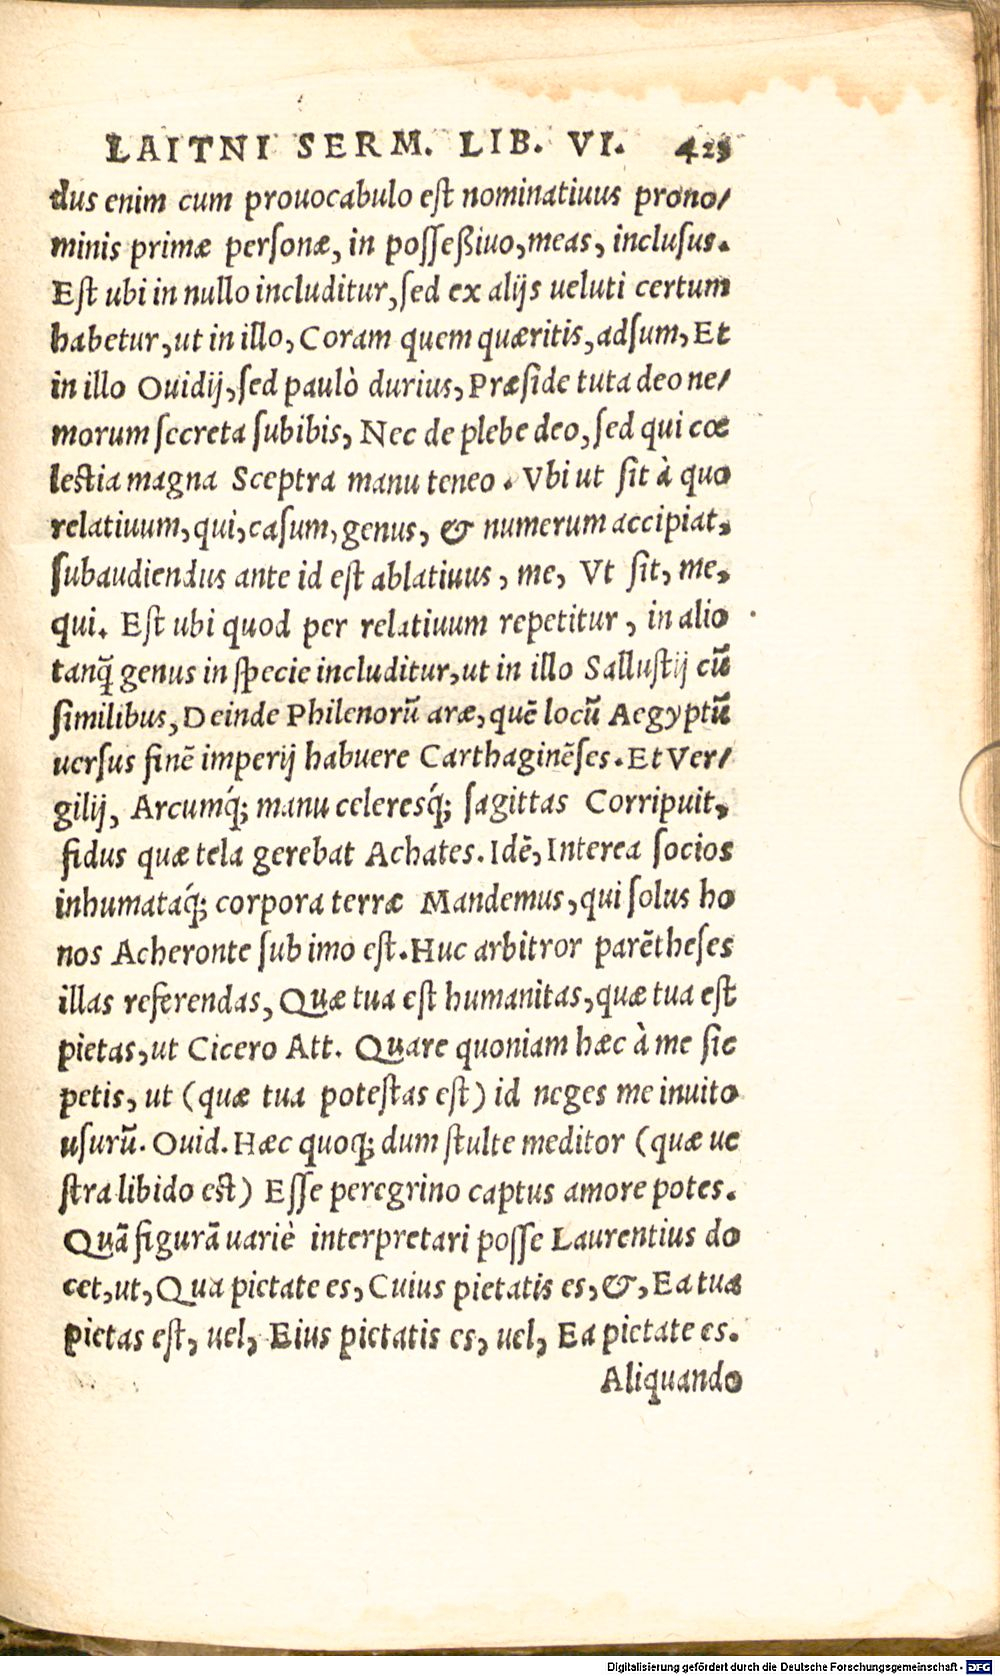 LAITNI SERM. LIB. VI. 425
dus enim cum prouocabulo est nominatiuus prono/
minis primæ personæ, in posseßiuo, meas, inclusus.
Est ubi in nullo includitur, sed ex alijs ueluti certum
habetur, ut in illo, Coram quem quæritis, adsum, Et
in illo Ouidij, sed paulò durius, Præside tuta deo ne/
morum secreta subibis, Nec de plebe deo, sed qui cœ
lestia magna Sceptra manu teneo. Vbi ut sit à quo
relatiuum, qui, casum, genus, & numerum accipiat,
subaudiendus ante id est ablatiuus, me, Vt sit, me,
qui. Est ubi quod per relatiuum repetitur, in alio
tanq̃ genus in specie includitur, ut in illo Sallustij cũ
similibus, Deinde Philenorũ aræ, quẽ locũ Aegyptũ
uersus finẽ imperij habuere Carthaginẽses. Et Ver/
gilij, Arcumq́; manu celeresq́; sagittas Corripuit,
fidus quæ tela gerebat Achates. Idẽ, Interea socios
inhumataq́; corpora terræ Mandemus, qui solus ho
nos Acheronte sub imo est. Huc arbitror parẽtheses
illas referendas, Quæ tua est humanitas, quæ tua est
pietas, ut Cicero Att. Quare quoniam hæc à me sic
petis, ut (quæ tua potestas est) id neges me inuito
usurũ. Ouid. Hæc quoq; dum stulte meditor (quæ ue
stra libido est) Esse peregrino captus amore potes.
Quã figurã uariè interpretari posse Laurentius do
cet, ut, Qua pietate es, Cuius pietatis es, &, Ea tua
pietas est, uel, Eius pietatis es, uel, Ea pietate es.
Aliquando
Digitalisierung gefördert durch die Deutsche Forschungsgemeinschaft - DFG